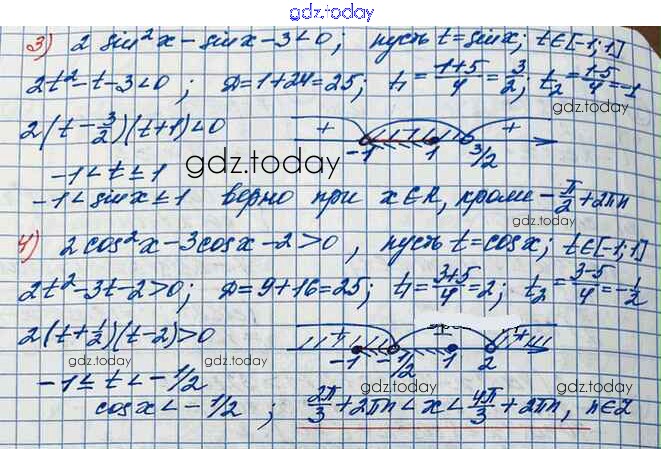 gdz.today
3) 2 sin²x - sinx - 3 < 0; пусть t = sinx; t∈[-1;1]
2t² - t - 3 < 0; D = 1+24 = 25; t₁ = (1+5)/4 = 3/2; t₂ = (1-5)/4 = -1
gdz.today
2(t - 3/2)(t+1) < 0 + -1 1 3/2 +
-1 < t ≤ 1 gdz.today
-1 < sinx ≤ 1 верно при x∈R, кроме -π/2 + 2πn
gdz.today
4) 2 cos²x - 3cosx - 2 > 0, пусть t = cosx; t∈[-1;1]
2t² - 3t - 2 > 0; D = 9+16 = 25; t₁ = (3+5)/4 = 2; t₂ = (3-5)/4 = -1/2
2(t + 1/2)(t-2) > 0 + -1 -1/2 1 2 +
gdz.today gdz.today gdz.today
-1 ≤ t < -1/2
cosx < -1/2; 2π/3 + 2πn < x < 4π/3 + 2πn, n∈Z